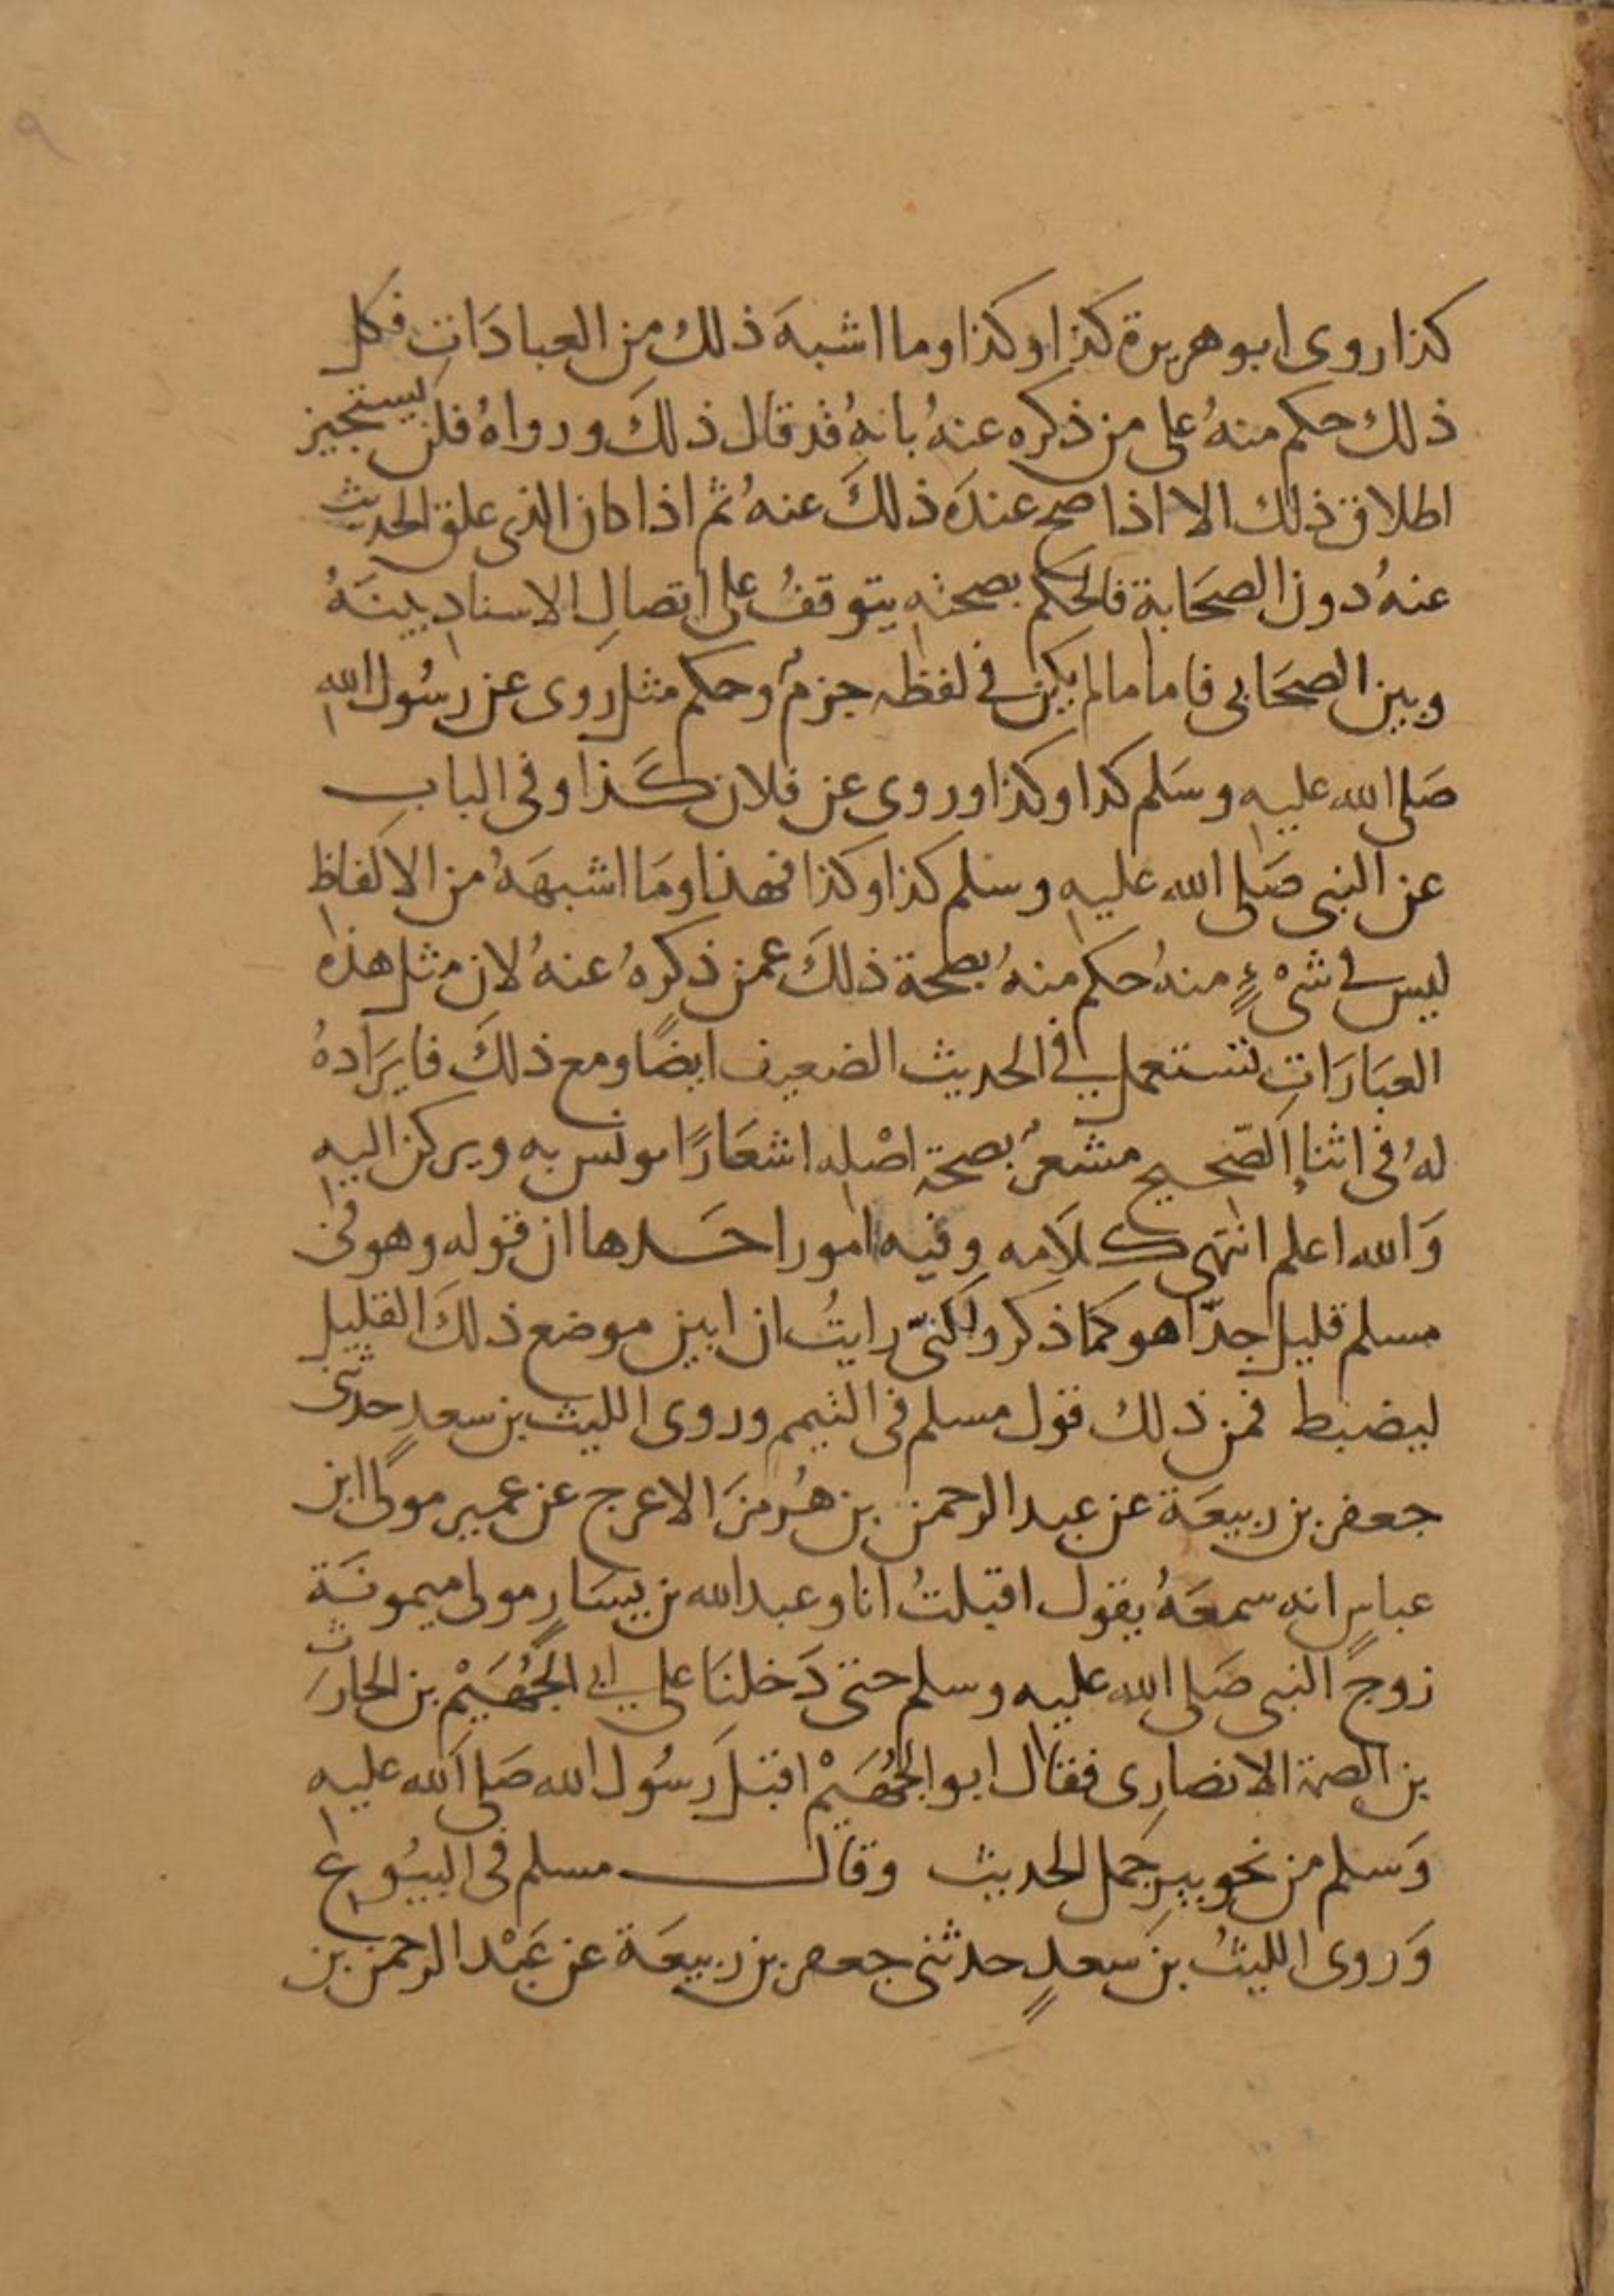 ٩
كذا روى ابو هريرة كذا وكذا وما اشبهَ ذلك من العبادَاتِ فكل
ذلك حكم منهُ على من ذكره عنهُ بانهُ قد قال ذلكَ ورواهُ فلن يستجيز
اطلاق ذلك الا اذا صح عندَه ذلكَ عنهُ ثم اذا كان الذى علق الحديث
عنهُ دون الصحَابة فالحكم بصحتهِ يتوقفُ على اتصالِ الاسنادِ بينَهُ
وبين الصحَابى فاما ما لم يكن فى لفظه جزمٌ وحكم مثل روى عن رسُول الله
صَلى الله عليهِ وسَلم كدا وكذا وروى عن فلان كَذا وفى البابِ
عن النبى صَلى الله عليهِ وسلم كذا وكذا فهذا ومَا اشبهَهُ من الالفاظِ
ليس فى شىْءٍ منهُ حكم منهُ بصحة ذلكَ عمن ذكرهُ عنهُ لان مثل هذه
العبَارَاتِ تستعمل فى الحديث الضعيف ايضًا ومع ذلكَ فايرَادهُ
لهُ فى اثناءِ الصّحيح مشعرٌ بصحةِ اصْلِه اشعَارًا يونس به ويركن اليهِ
وَالله اعلم انتهى كلَامه وفيه امور احَدها ان قوله وهو فى
مسلم قليل جدّا هو كمَا ذكر ولكنّى رايتُ ان ابين موضع ذلكَ القليل
ليضبط فمن ذلك قول مسلم فى التيمم وروى الليث بن سعدٍ حدثنى
جعفر بن ربيعَة عن عبد الرحمن بن هُرمزَ الاعرج عن عمير مولى ابن
عباسٍ انه سمعَهُ يقول اقبلتُ انا وعبد الله بن يسَارٍ مولى ميمونَة
زوجِ النبى صَلى الله عليه وسلم حتى دَخلنَا على ابى الجُهَيْم بن الحارث
بن الصمة الانصارِى فقال ابو الجُهَيْم اقبل رَسُول الله صَلى الله عليه
وَسلم من نحو بير جَمل الحديث وقال مسلم فى البيُوع
وَروى الليثُ بن سَعدٍ حدثنى جعفر بن ربيعَة عن عَبْد الرحمن بن